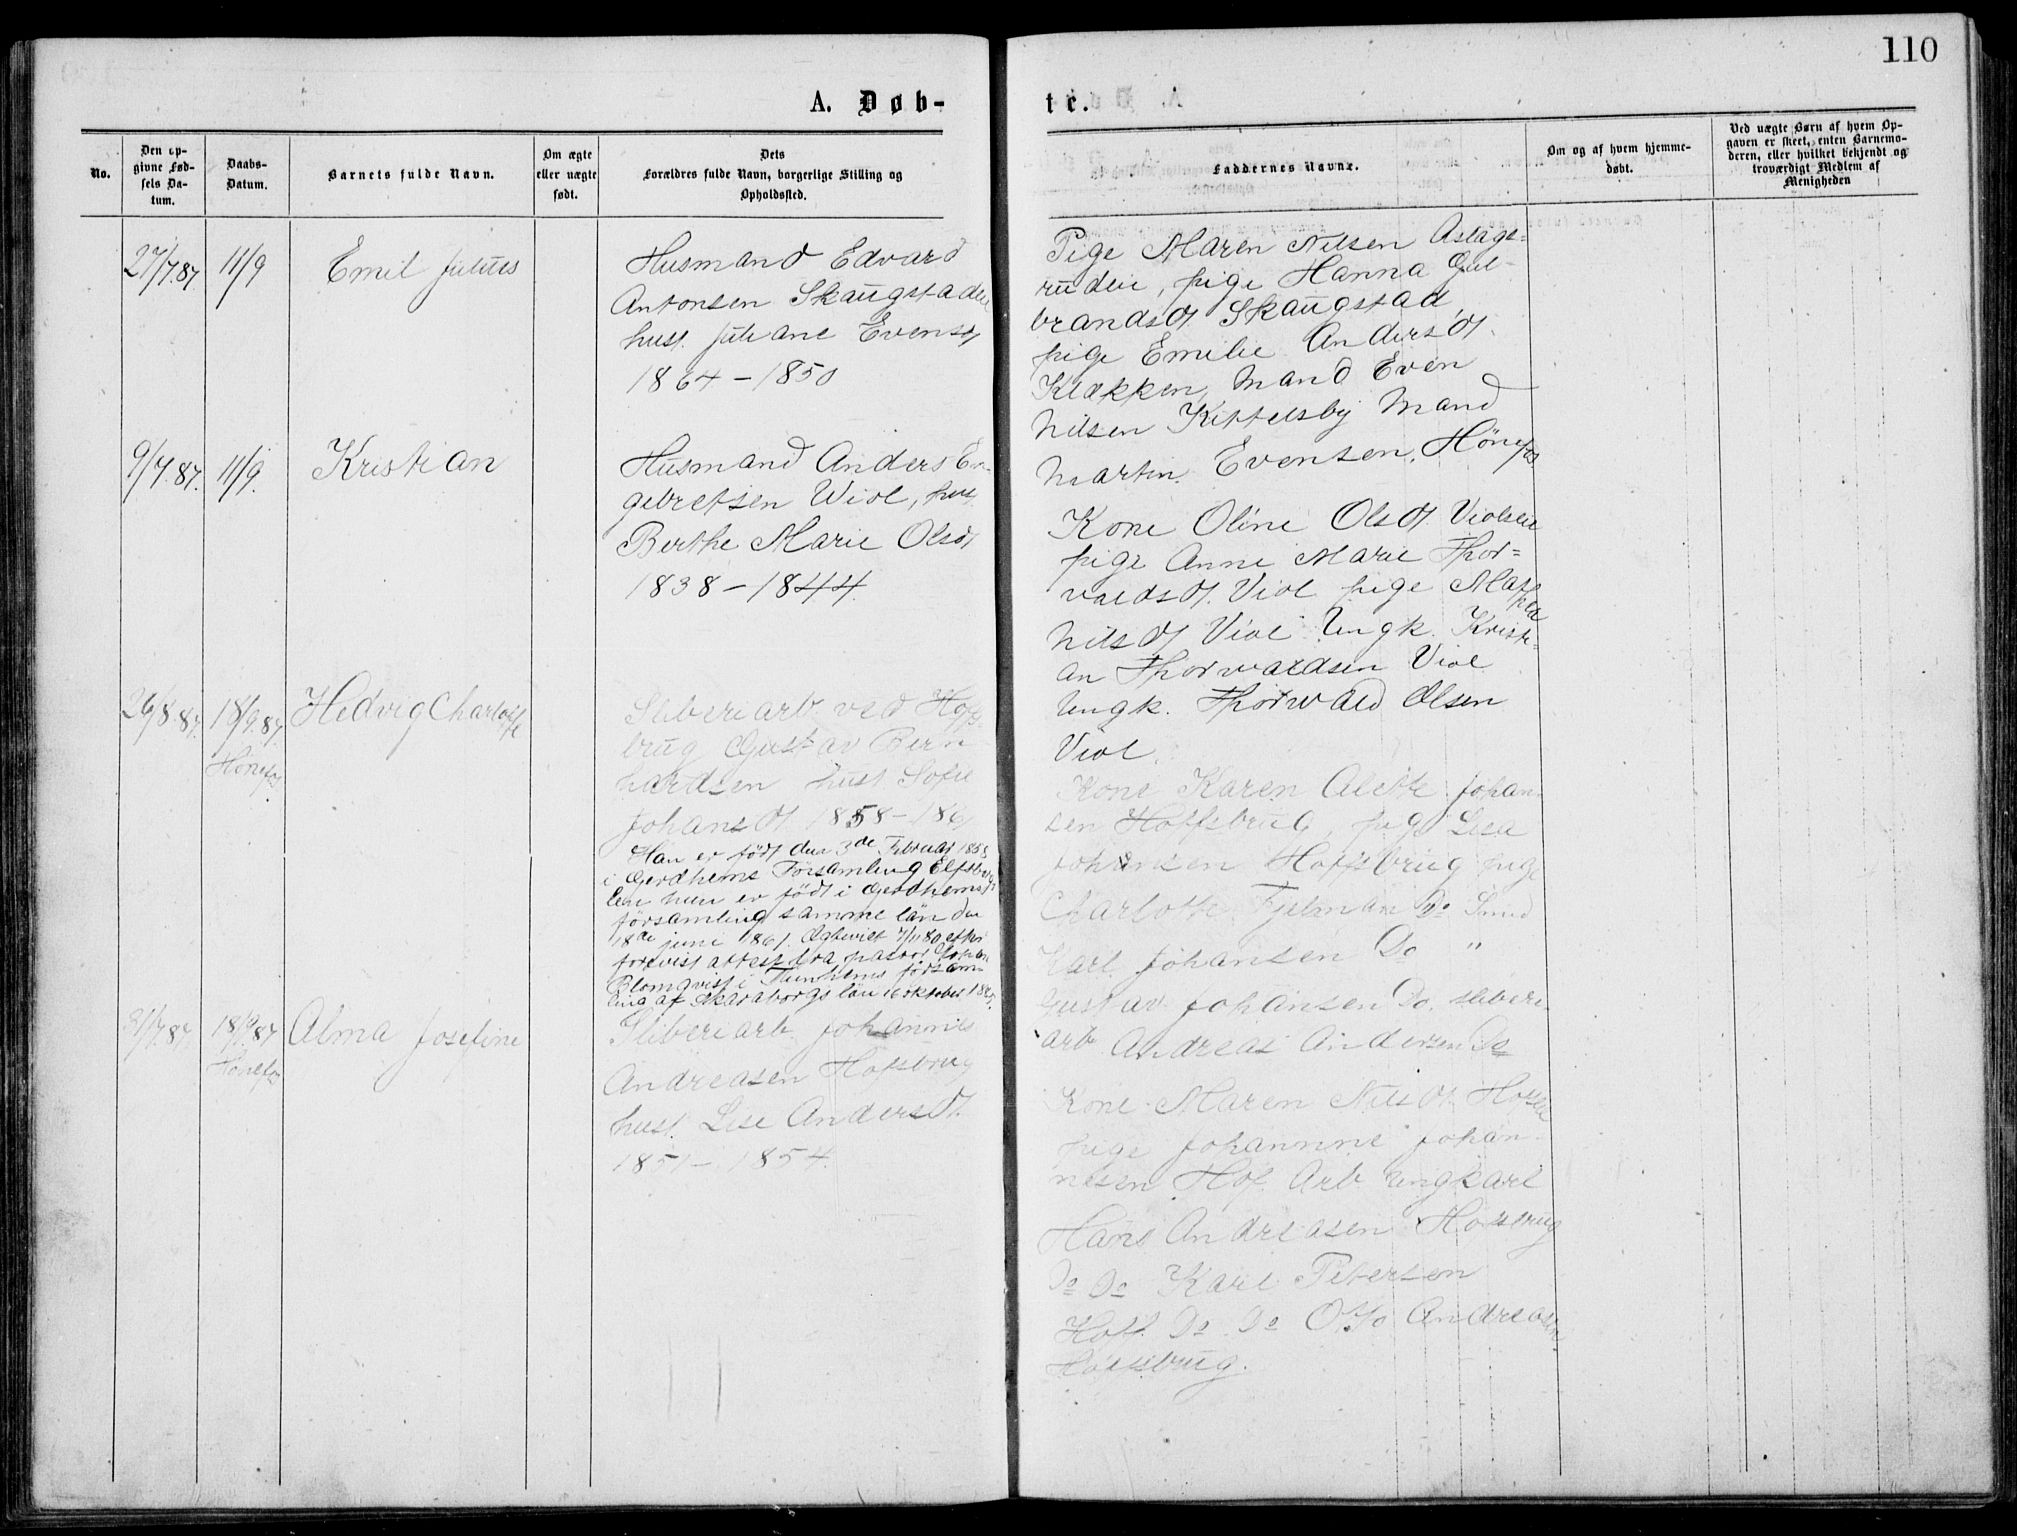 110
A. Døb-
te.
No.
Den op-
givne Fød-
sels Da-
tum.
Daabs-
Datum.
Barnets fulde Navn.
Om ægte
eller uægte
født.
Dets
Forældres fulde Navn, borgerlige Stilling og
Opholdssted.
Faddernes Navne.
Om og af hvem hjemme-
døbt.
Ved uægte Børn af hvem Op-
gaven er skeet, enten Barnemo-
deren, eller hvilket bekjendt og
troværdigt Medlem af
Menigheden
27/7.87
11/9
Emil Julius
Husmand Edvard
Antonsen Skaugstadeie
hust. Juliane Evensdt
1864 – 1850
Pige Maren Nilsen Aslags-
rudeie, pige Hanna Gul-
brandsdt Skaugstad,
pige Emilie Andersdt.
Klækken, Mand Even
Nilsen Kittelsby Mand
Martin Evensen, Hönefos
9/7.87.
11/9.
Kristian
Husmand Anders En-
gebretsen Wiol, hust.
Berthe Marie Olsdt
1838 – 1844.
Kone Oline Olsdt. Violseie
pige Anne Marie Thor-
valdsdt. Viol pige Mathilde
Nilsdt Viol Ungk. Kristi-
an Thorwaldsen Viol
Ungk. Thorwald Olsen
Viol.
26/8.87.
18/9.87.
Hönefos
Hedvig Charlotte
Sliberiarb. ved Hoffs-
brug Gustav Bern-
hardsen hust. Sofie
Johansdt 1858 – 1861
Han er födt den 3de Februar 1858
i Gerdhems Församling Elfsborgs
len hun er födt i Gerdhems
församling samme län den
18de juni 1861. Ægteviet 7/11 80 efter
forevist attest fra pastor Johan
Blomqvist i Tunhems försam-
ling af Skaraborgs län 16 oktober
Kone Karen Alette Johan-
sen Hoffsbrug, pige Lisa
Johansen Hoffsbrug pige
Charlotte Fjelman Do Smed
Karl Johansen Do "
Gustav Johansen Do. sliberi-
arb Andreas Andersen Do
18/9.87
Hönefos
Alma Josefine
Sliberiarb. Johannes
Andreasen Hofsbrug
hust. Lise Andersdt.
1851 – 1854.
Kone Maren Nilsdt.
pige Johannne Johan-
nesen Hof. Arb. Ungkarl
Hans Andreasen Hofsbrug
Do Do Karl Petersen
Hoff. Do Do Otto Andreasen
Hoffsbrug.